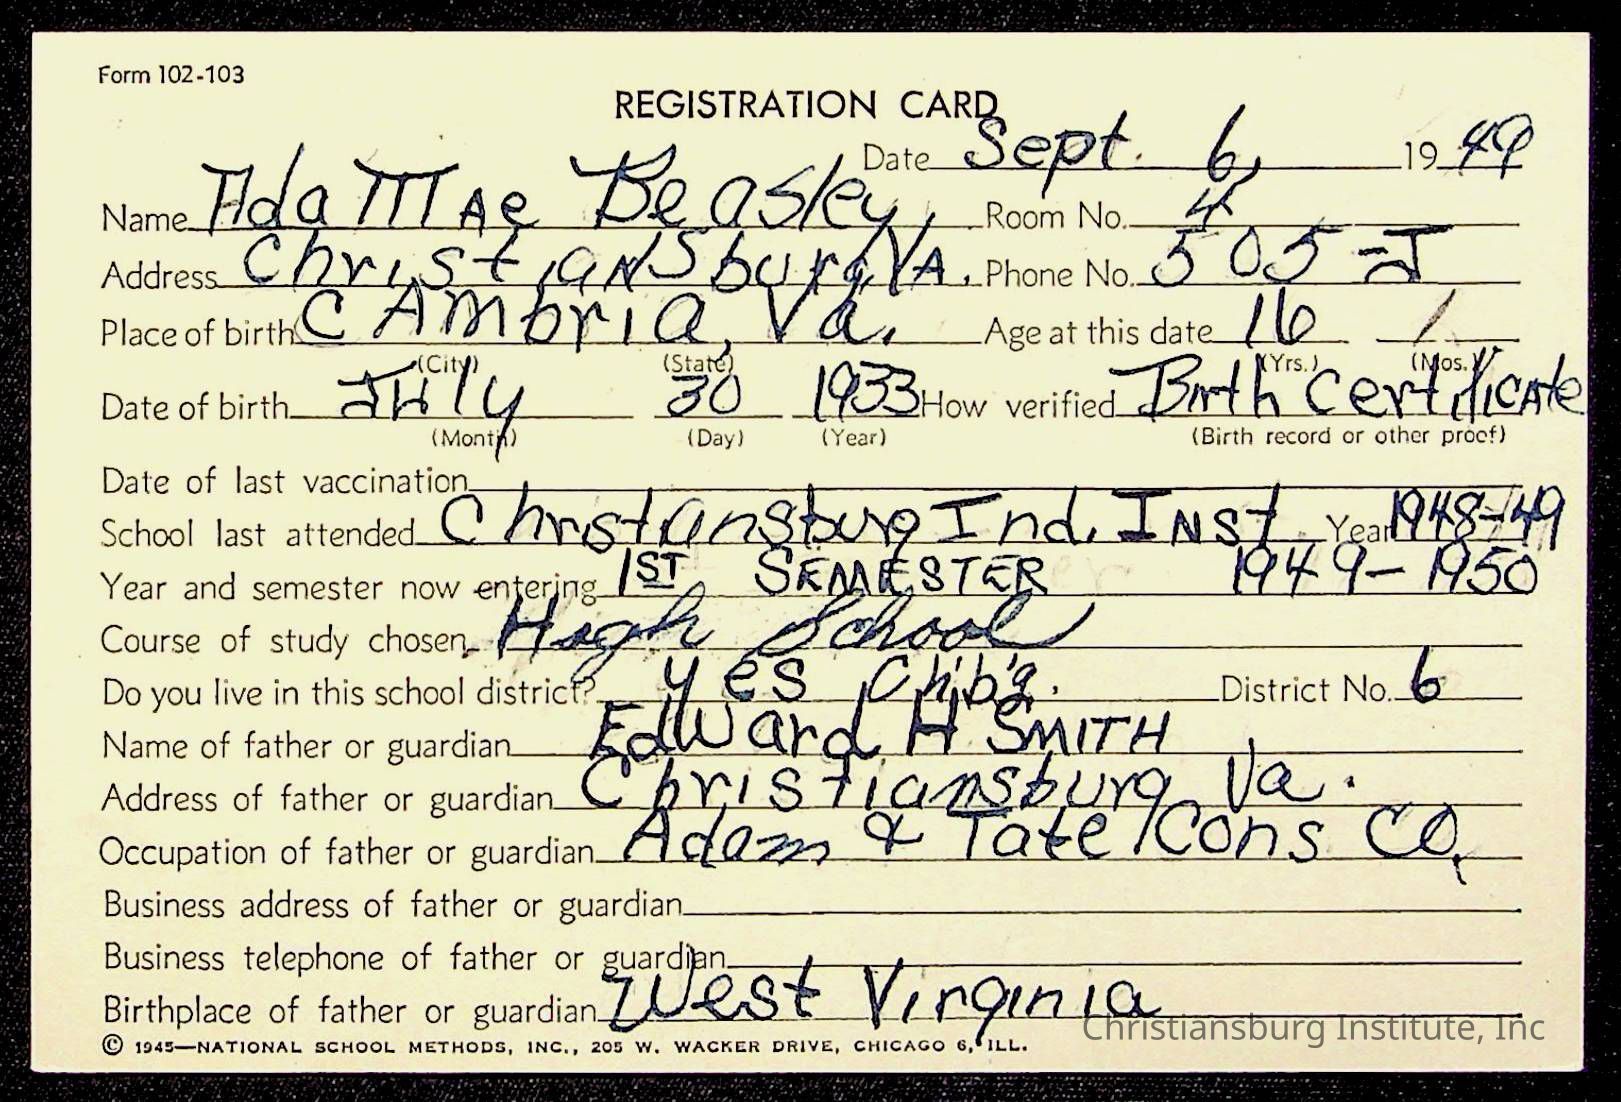 Form 102-103
REGISTRATION CARD
Date Sept. 6, 19 49
Name Ada Mae Beasley, Room No. 4
Address Christiansburg, VA. Phone No. 505-J
Place of birth CAmbria, Va. Age at this date 16 /
(City) (State) (Yrs.) (Mos.)
Date of birth July 30 1933 How verified Birth Certificate
(Month) (Day) (Year) (Birth record or other proof)
Date of last vaccination
School last attended Christiansburg Ind. Inst Year 1948-49
Year and semester now entering 1ST SEMESTER 1949-1950
Course of study chosen High School
Do you live in this school district? yes Ch'b'g. District No. 6
Name of father or guardian Edward H SMITH
Address of father or guardian Christiansburg Va.
Occupation of father or guardian Adam & Tate Cons Co,
Business address of father or guardian
Business telephone of father or guardian
Birthplace of father or guardian West Virginia
© 1945—NATIONAL SCHOOL METHODS, INC., 205 W. WACKER DRIVE, CHICAGO 6, ILL.
Christiansburg Institute, Inc